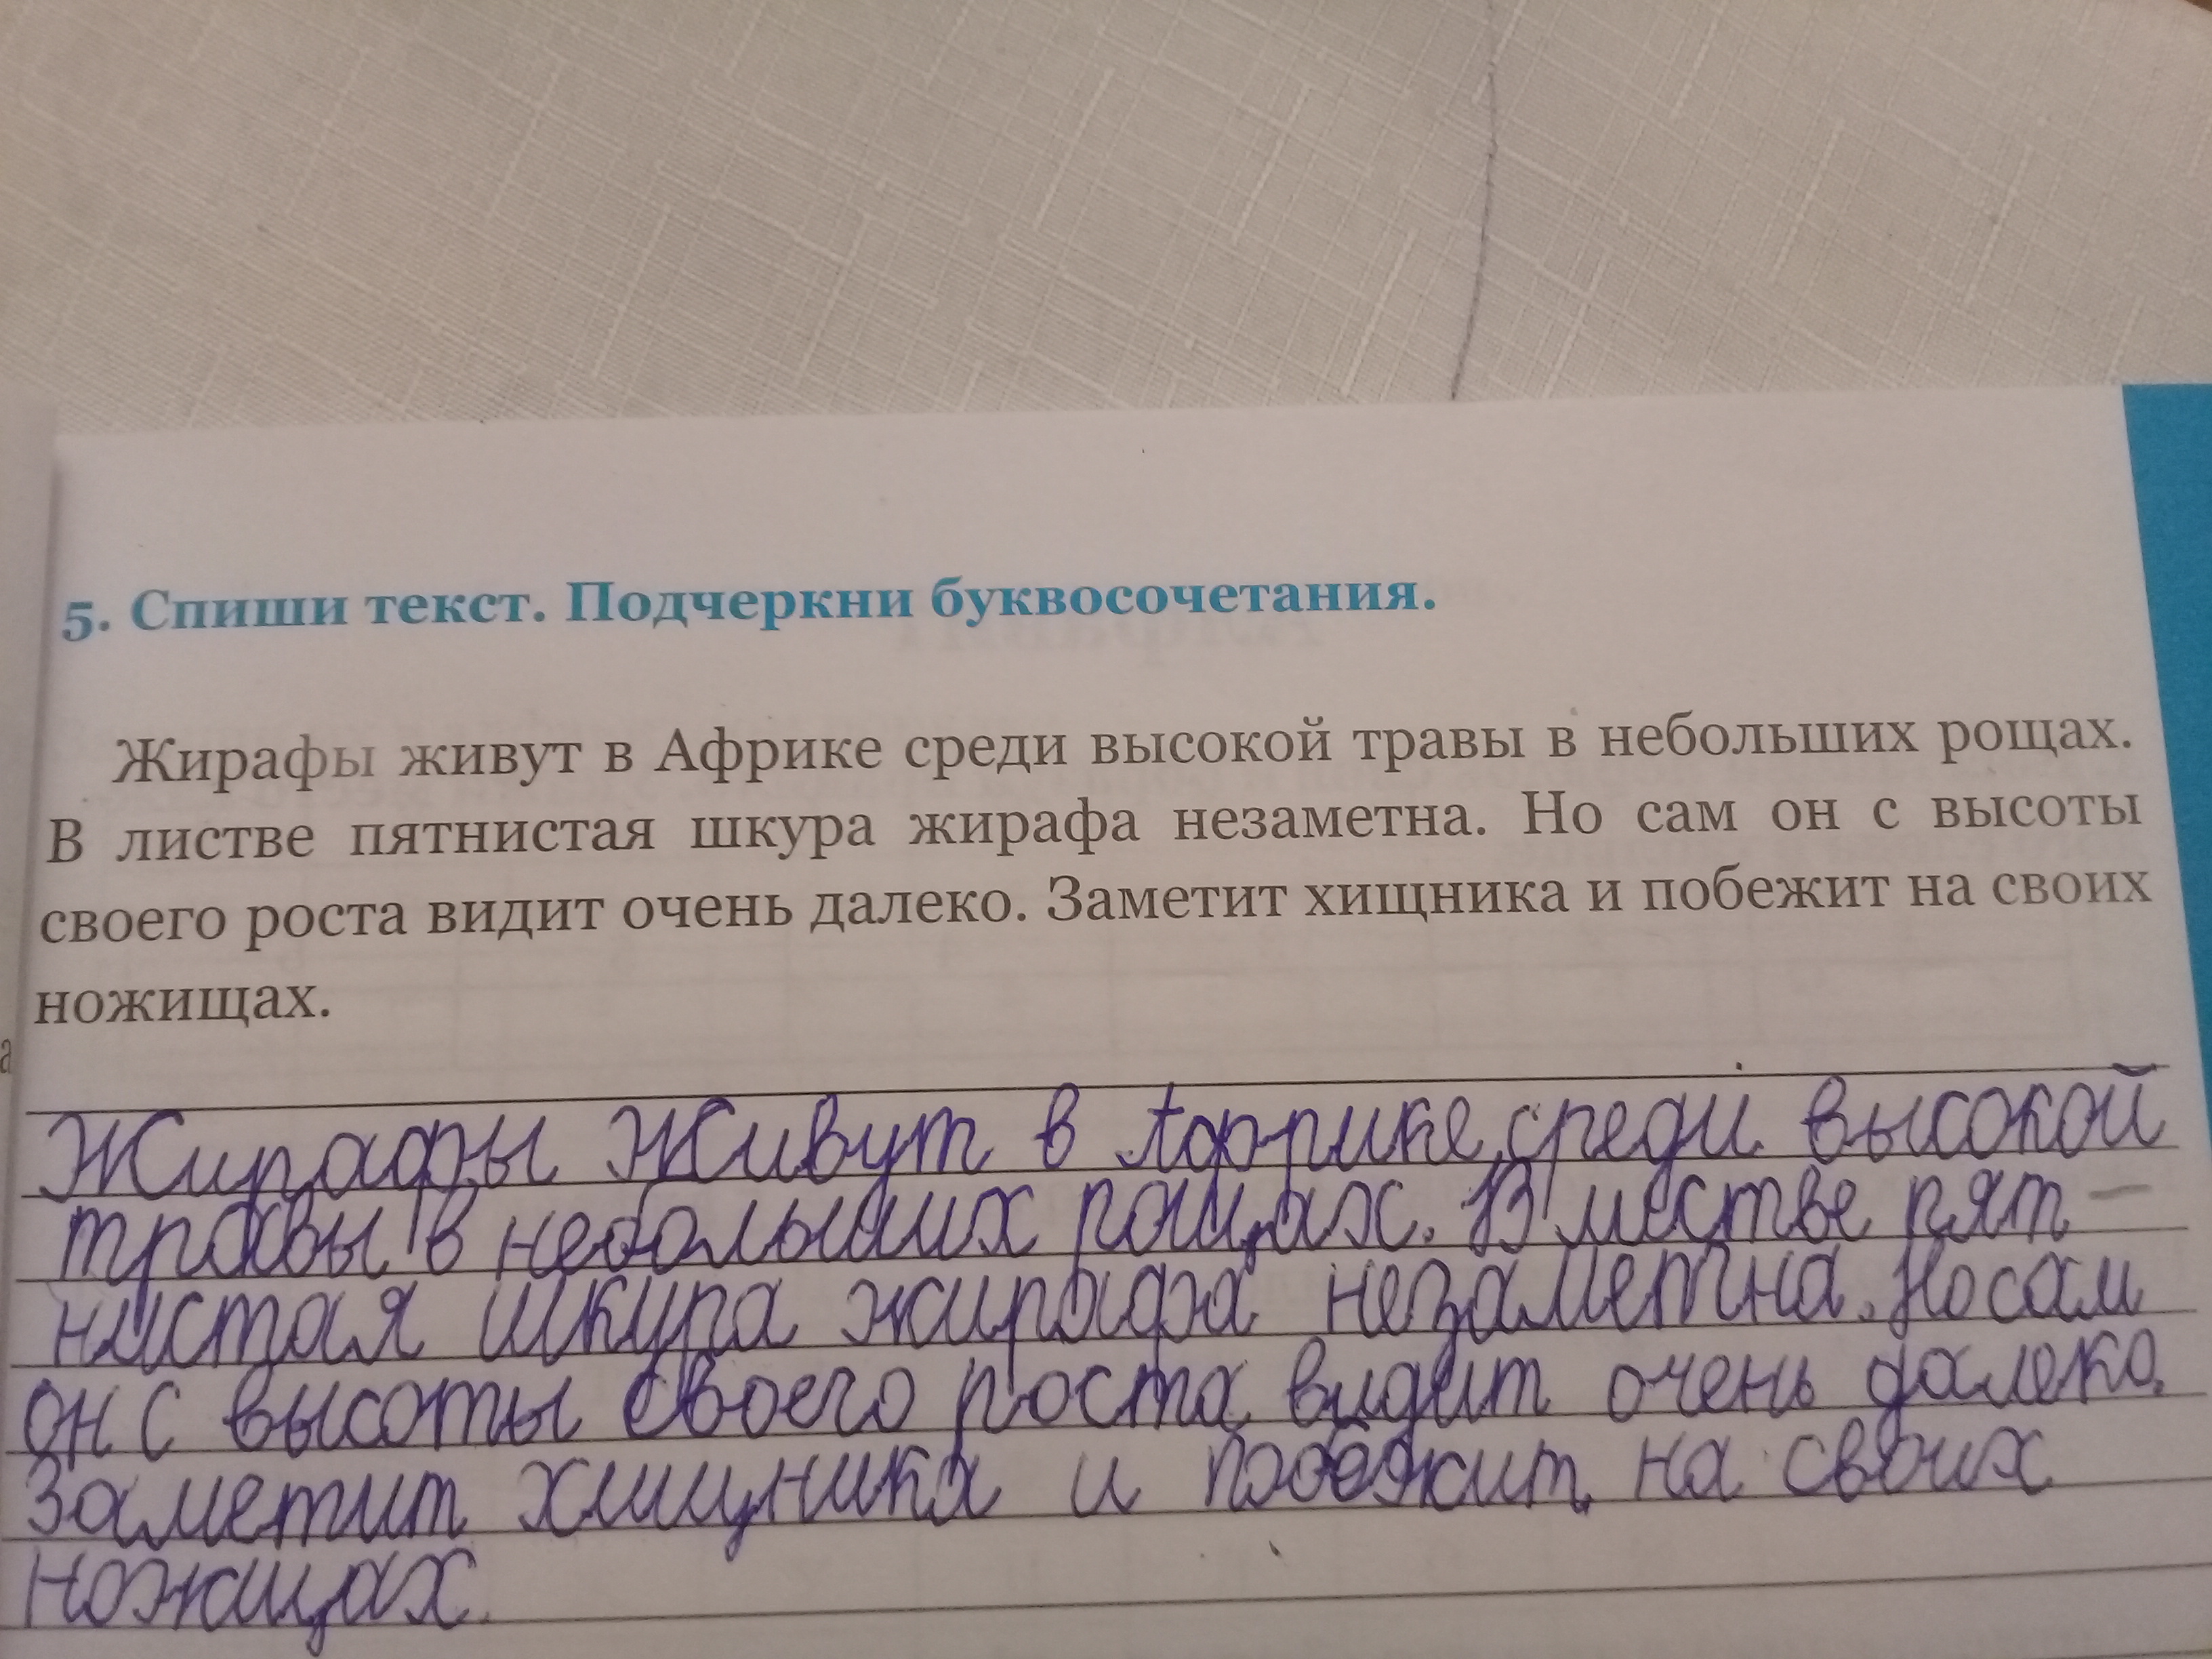 5. Спиши текст. Подчеркни буквосочетания.
Жирафы живут в Африке среди высокой травы в небольших рощах.
В листве пятнистая шкура жирафа незаметна. Но сам он с высоты
своего роста видит очень далеко. Заметит хищника и побежит на своих
ножищах.
а
Жирафы Живут в Африке среди высокой
травы в небольших рощах. В листве пят-
нистая шкура жирафа незаметна. Но сам
он с высоты своего роста видит очень далеко.
Заметит хищника и побежит на своих
ножищах.